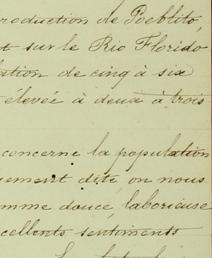 roduction de Poeblito,
t sur le Rio Florido
ation de cinq à six
élevée à deux à trois
concerne la population
ement dite on nous
omme douce laborieuse
cellents sentiments